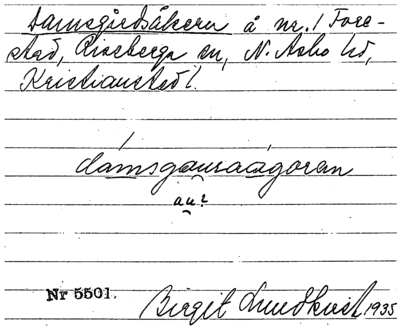 Damsgårdsåkern å nr. 1 Fore-
stad, Riseberga sn, N. Åsbo hd,
Kristianstad l.
damsgauraagoran
au?
Nr 5501.
Birgit Lundkvist 1935